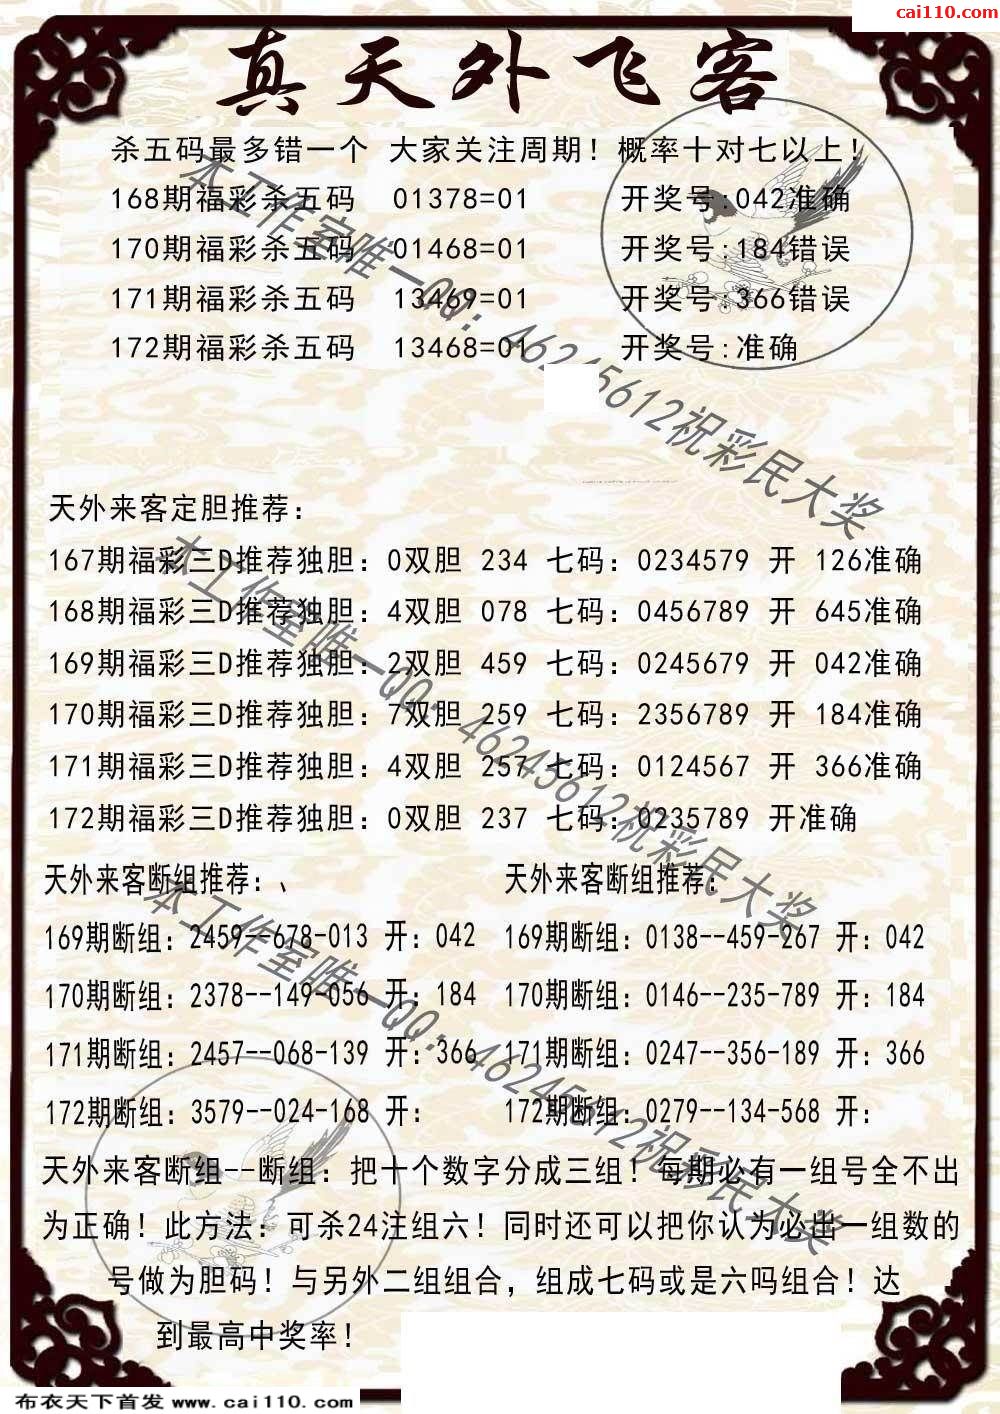 cai110.com
真天外飞客
杀五码最多错一个 大家关注周期！概率十对七以上！
168期福彩杀五码 01378=01 开奖号:042准确
170期福彩杀五码 01468=01 开奖号:184错误
171期福彩杀五码 13469=01 开奖号:366错误
172期福彩杀五码 13468=01 开奖号:准确
本工作室唯一QQ：46245612祝彩民大奖
天外来客定胆推荐：
167期福彩三D推荐独胆：0双胆 234 七码：0234579 开 126准确
168期福彩三D推荐独胆：4双胆 078 七码：0456789 开 645准确
169期福彩三D推荐独胆：2双胆 459 七码：0245679 开 042准确
170期福彩三D推荐独胆：7双胆 259 七码：2356789 开 184准确
171期福彩三D推荐独胆：4双胆 257 七码：0124567 开 366准确
172期福彩三D推荐独胆：0双胆 237 七码：0235789 开准确
本工作室唯一QQ：46245612祝彩民大奖
天外来客断组推荐：、 天外来客断组推荐：
169期断组：2459--678-013 开：042 169期断组：0138--459-267 开：042
170期断组：2378--149-056 开：184 170期断组：0146--235-789 开：184
171期断组：2457--068-139 开：366 171期断组：0247--356-189 开：366
172期断组：3579--024-168 开： 172期断组：0279--134-568 开：
本工作室唯一QQ：46245612祝彩民大奖
天外来客断组--断组：把十个数字分成三组！每期必有一组号全不出
为正确！此方法：可杀24注组六！同时还可以把你认为必出一组数的
号做为胆码！与另外二组组合，组成七码或是六吗组合！达
到最高中奖率！
布衣天下首发 www.cai110.com